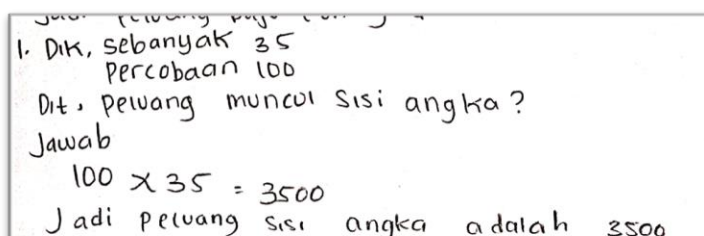 1. Dik, sebanyak 35
percobaan 100
Dit, peluang muncul sisi angka?
Jawab
100 x 35 = 3500
Jadi peluang sisi angka adalah 3500